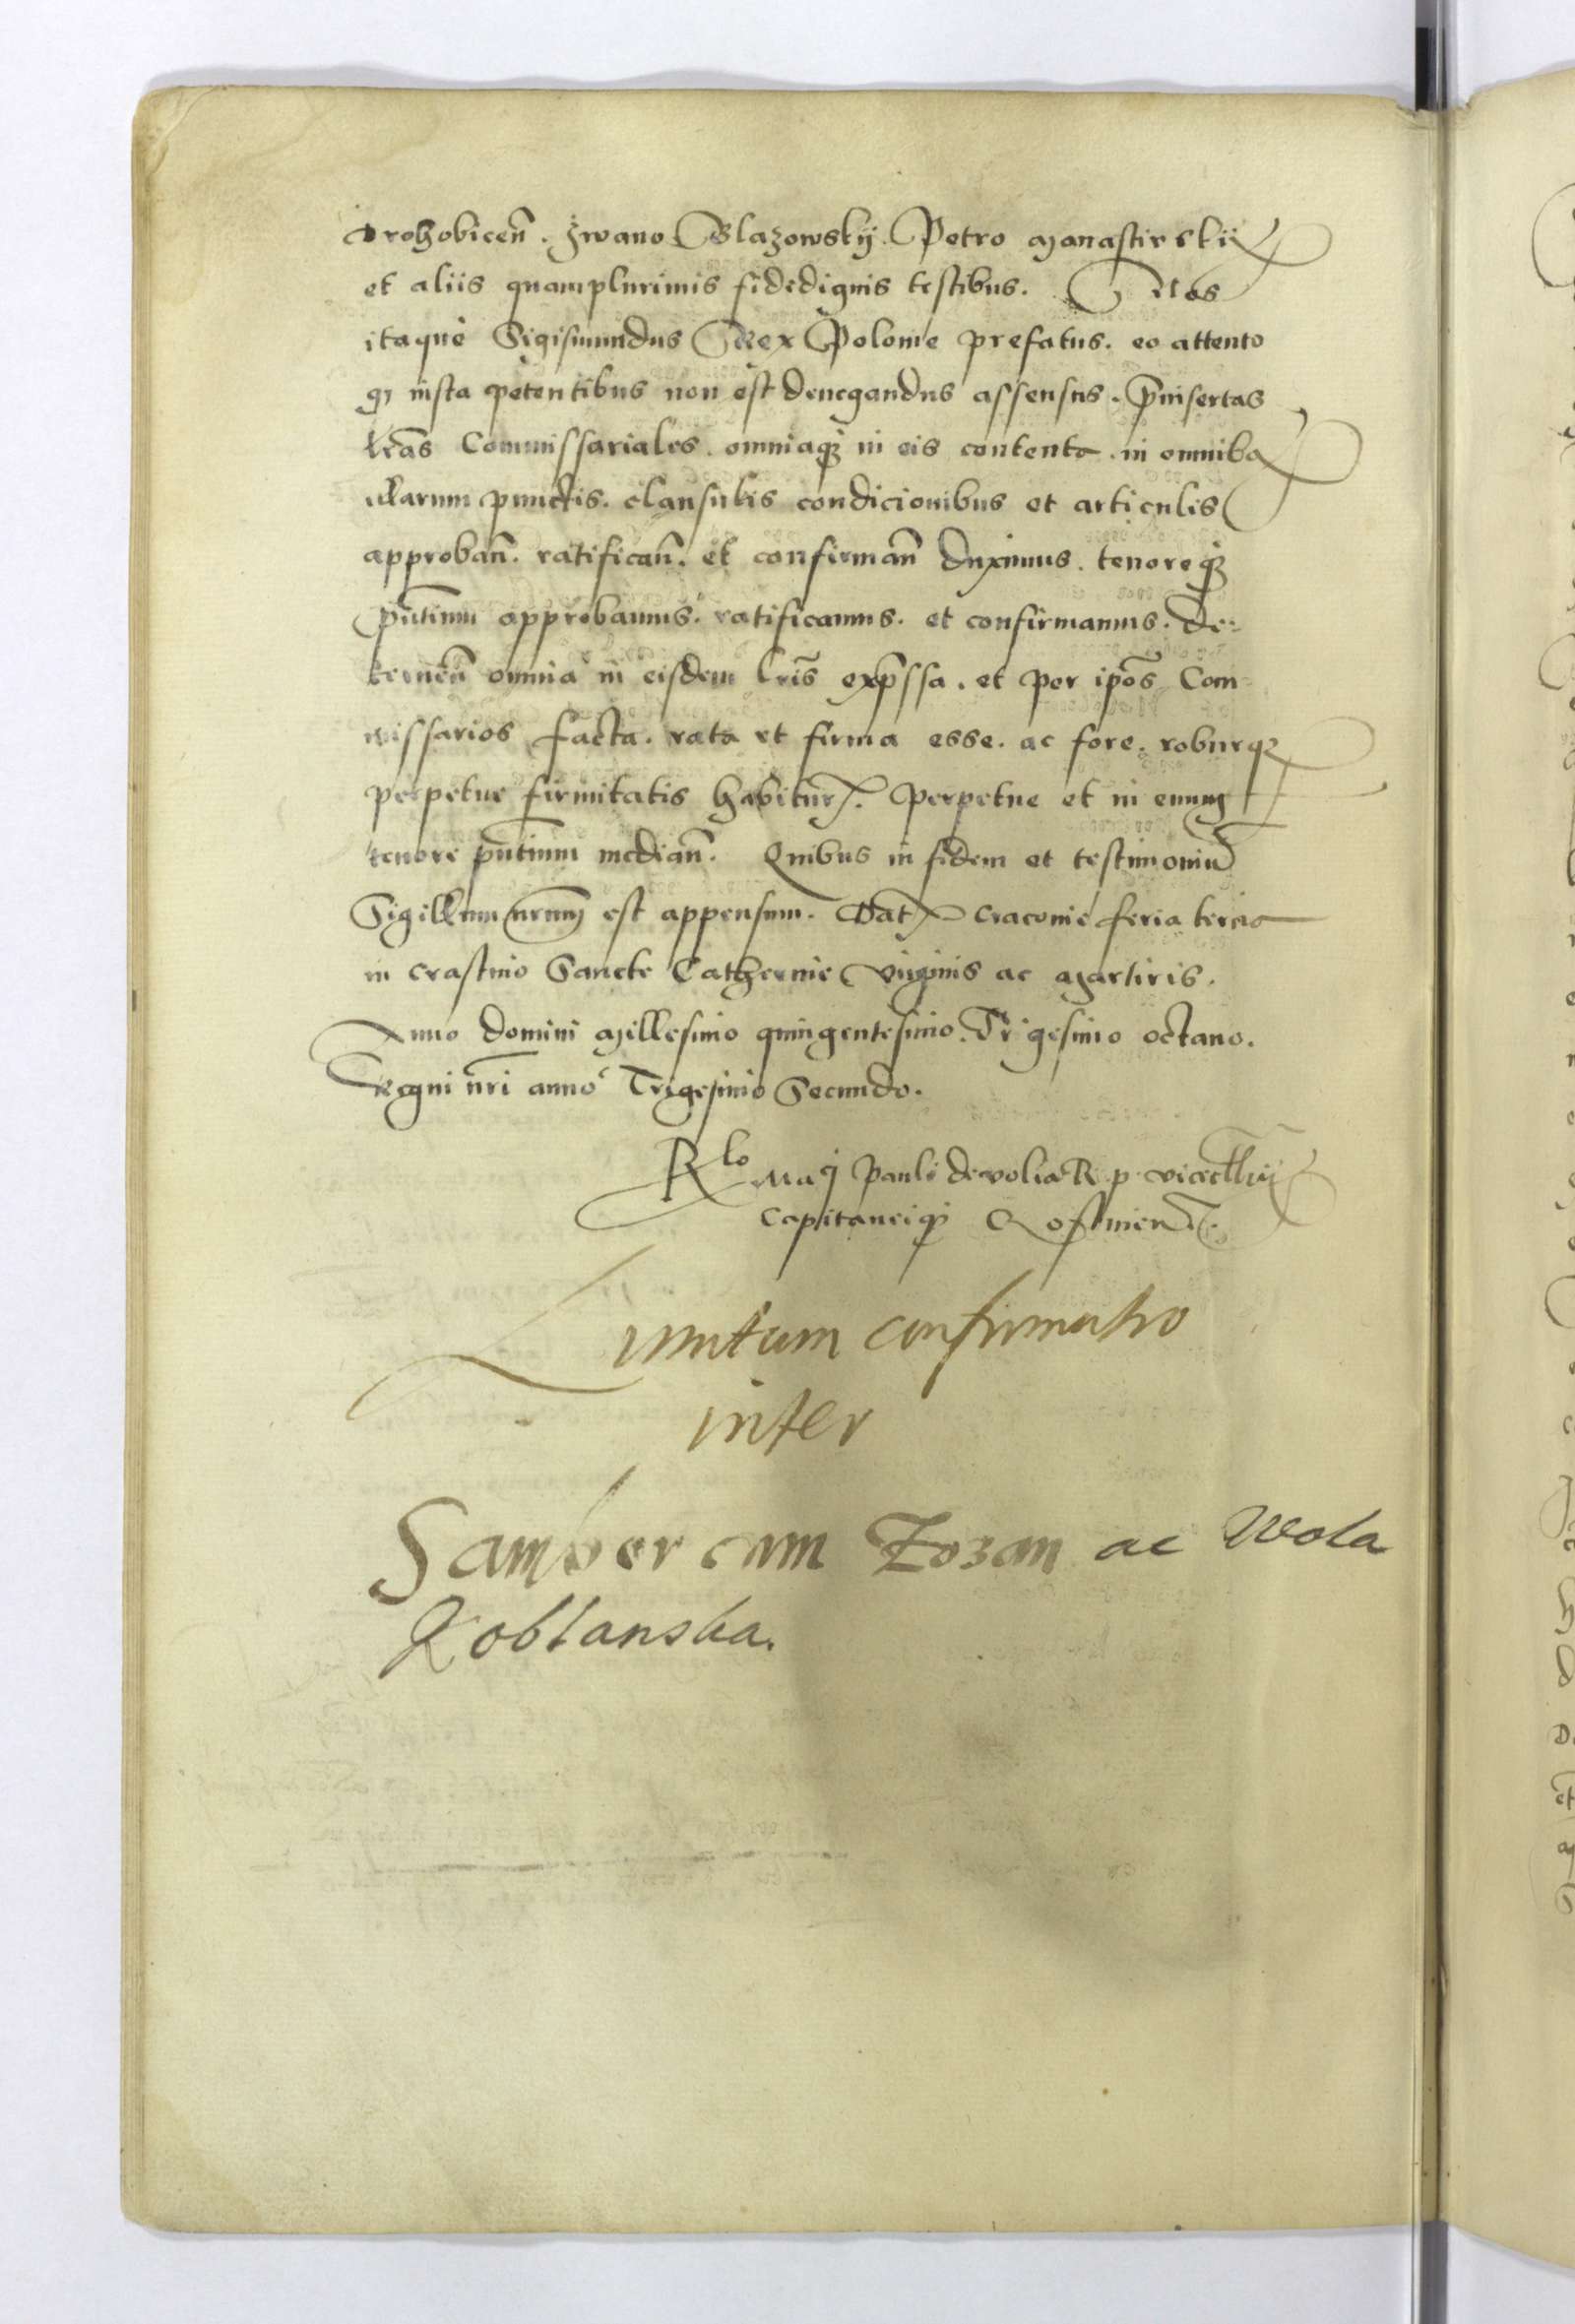 drohobicen̄. Jwano Blazowskij. Petro Manastirskii
et aliis quamplurimis fidedignis testibus. Nos
itaque Sigismundus Rex Polonie prefatus. eo attento
q iusta petentibus non est denegandus assensus. p̄insertas
lr̄as Commissariales. omniaq in eis contenta. in omnib
illarum punctis. clausulis condicionibus et articulis
approban̄. ratifican̄. et confirman̄ duximus. tenoreq
pn̄tium approbamus. ratificamus. et confirmamus. de-
cernen̄ omnia in eisdem lr̄is exp̄ssa. et per ip̄os Com
missarios facta. rata et firma esse. ac fore. roburq
perpetue firmitatis habitur. perpetue et in euum
tenore pn̄tium median̄. Quibus in fidem et testimoniū
Sigillum nr̄um est appensum. Dat Cracouie feria tercia
in crastino Sancte Catherine virginis ac Martiris.
Anno domini Millesimo quingentesimo. Trigesimo octauo.
Regni nr̄i anno Trigesimo Secundo.
Rlo Mag Pauli de volia R. p. vicecllrii
Capitaneiq Gostinen.
Limitum confirmatio
inter
Sambor cum Lozan ac Wola
Koblanska.